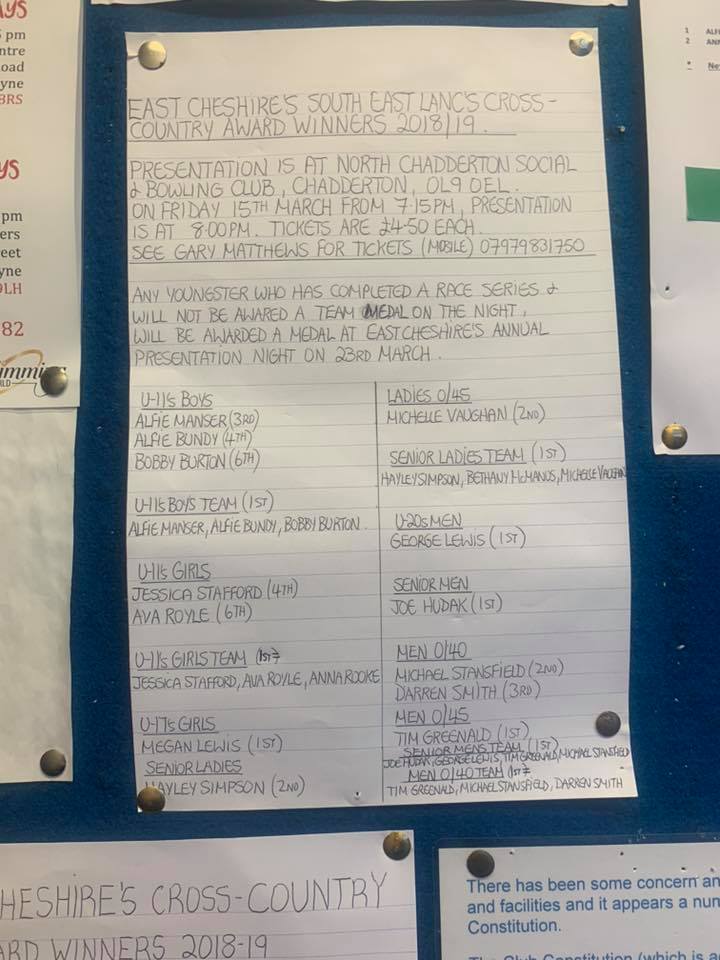 EAST CHESHIRE'S SOUTH EAST LANC'S CROSS-
COUNTRY AWARD WINNERS 2018/19.
PRESENTATION IS AT NORTH CHADDERTON SOCIAL
& BOWLING CLUB, CHADDERTON, OL9 0EL.
ON FRIDAY 15TH MARCH FROM 7.15PM, PRESENTATION
IS AT 8.00PM. TICKETS ARE £4.50 EACH.
SEE GARY MATTHEWS FOR TICKETS (MOBILE) 07979831750
ANY YOUNGSTER WHO HAS COMPLETED A RACE SERIES &
WILL NOT BE AWARED A TEAM MEDAL ON THE NIGHT,
WILL BE AWARDED A MEDAL AT EAST CHESHIRE'S ANNUAL
PRESENTATION NIGHT ON 23RD MARCH.
U-11's BOYS
ALFIE MANSER (3RD)
ALFIE BUNDY (4TH)
BOBBY BURTON (6TH)
U-11s BOYS TEAM (1ST)
ALFIE MANSER, ALFIE BUNDY, BOBBY BURTON.
U-11s GIRLS
JESSICA STAFFORD (4TH)
AVA ROYLE (6TH)
U-11s GIRLS TEAM (1ST=)
JESSICA STAFFORD, AVA ROYLE, ANNA ROOKE
U-17s GIRLS
MEGAN LEWIS (1ST)
SENIOR LADIES
HAYLEY SIMPSON (2ND)
LADIES O/45
MICHELLE VAUGHAN (2ND)
SENIOR LADIES TEAM (1ST)
HAYLEY SIMPSON, BETHANY McMANUS, MICHELLE VAUGHAN
U-20s MEN
GEORGE LEWIS (1ST)
SENIOR MEN
JOE HUDAK (1ST)
MEN O/40
MICHAEL STANSFIELD (2ND)
DARREN SMITH (3RD)
MEN O/45
TIM GREENALD (1ST)
SENIOR MENS TEAM (1ST)
JOE HUDAK, GEORGE LEWIS, TIM GREENALD, MICHAEL STANSFIELD
MEN O/40 TEAM (1ST=
TIM GREENALD, MICHAEL STANSFIELD, DARREN SMITH
AYS
pm
ntre
oad
yne
BRS
YS
pm
ers
reet
yne
9LH
82
1 ALFI
2 ANN
* Ne
HESHIRE'S CROSS-COUNTRY
ARD WINNERS 2018-19
There has been some concern an
and facilities and it appears a nun
Constitution.
The Club Constitution (which is a